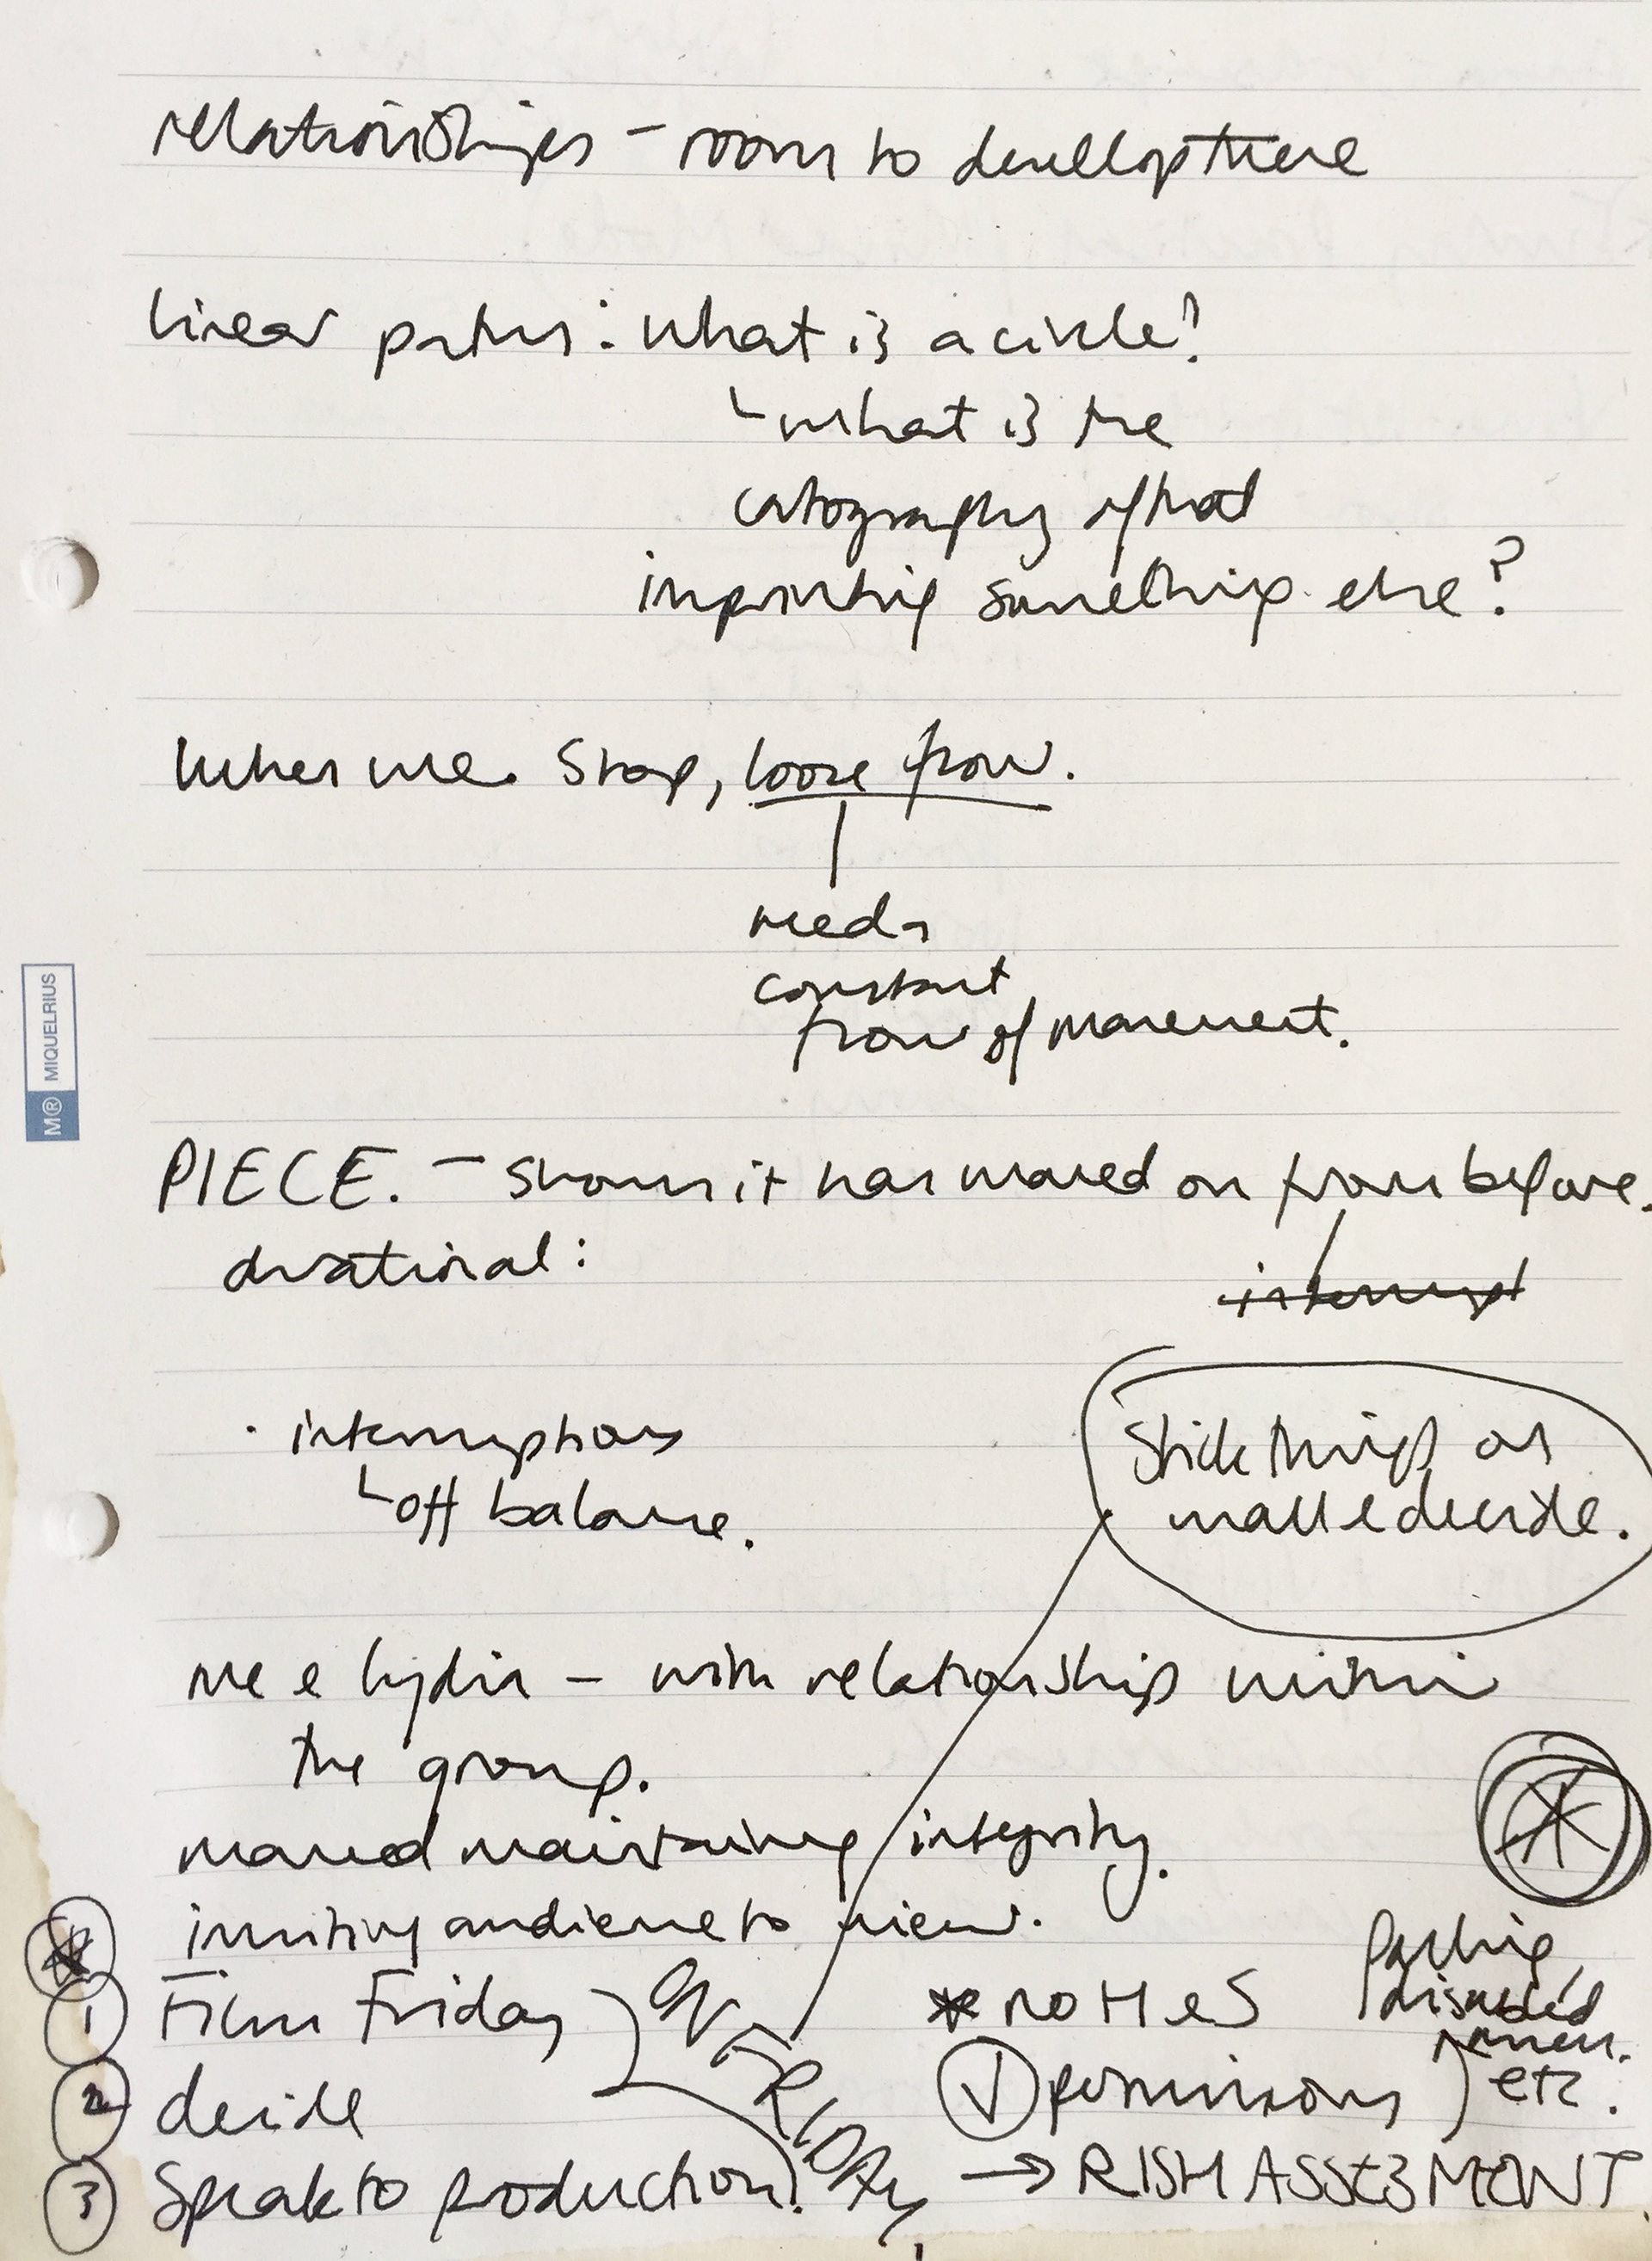 relationships – room to develop these
linear paths: what is a circle?
what is the
catography of that
imprinting something else?
When we stop, loose flow.
needs
constant
flow of movement.
PIECE. – shows it has moved on from before.
durational:
interrupt
· interruptions
off balance.
Stick things on
wall & decide.
Me & lydia – with relationships within
the group.
moved maintaining integrity.
inviting audience to view.
1 Film Friday
2 decide
3 Speak to production!
ON FRIDAY
* NOTES
permissions
disabled
etc.
→ RISK ASSESSMENT.
M® MIQUELRIUS